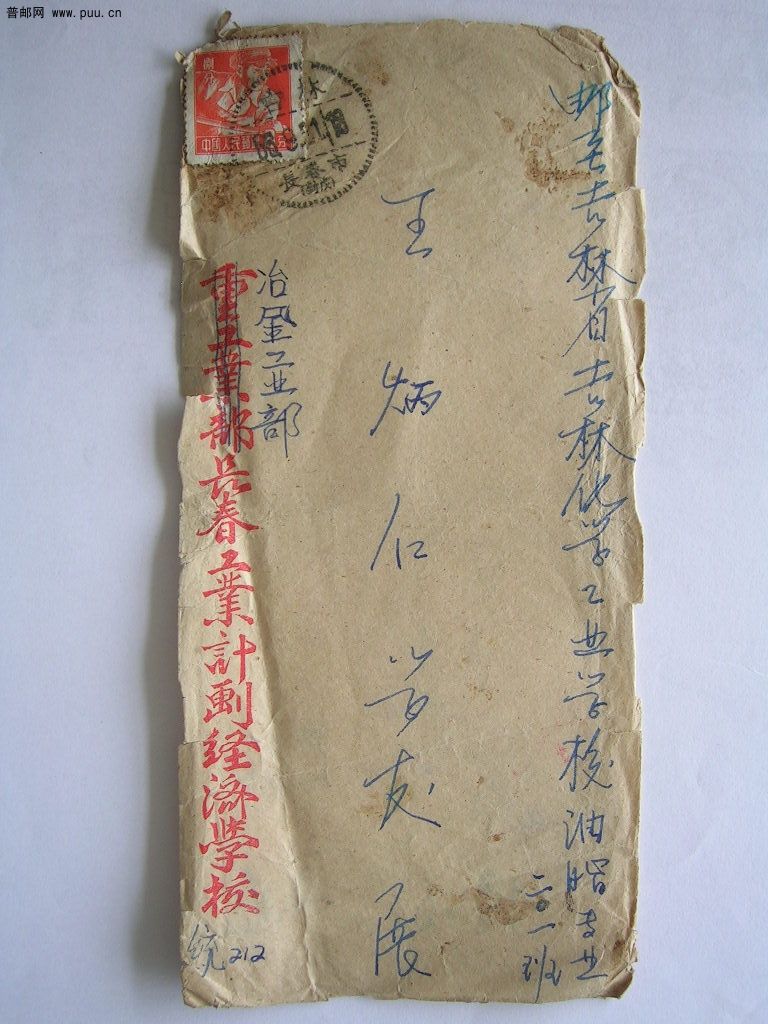 普邮网 www.puu.cn
邮至吉林省吉林化学工业学校油脂专业
二〇一班
王炳仁学友展
冶金工业部
重工業部長春工業計劃経濟學校
统212
中國人民郵政
吉林
長春市